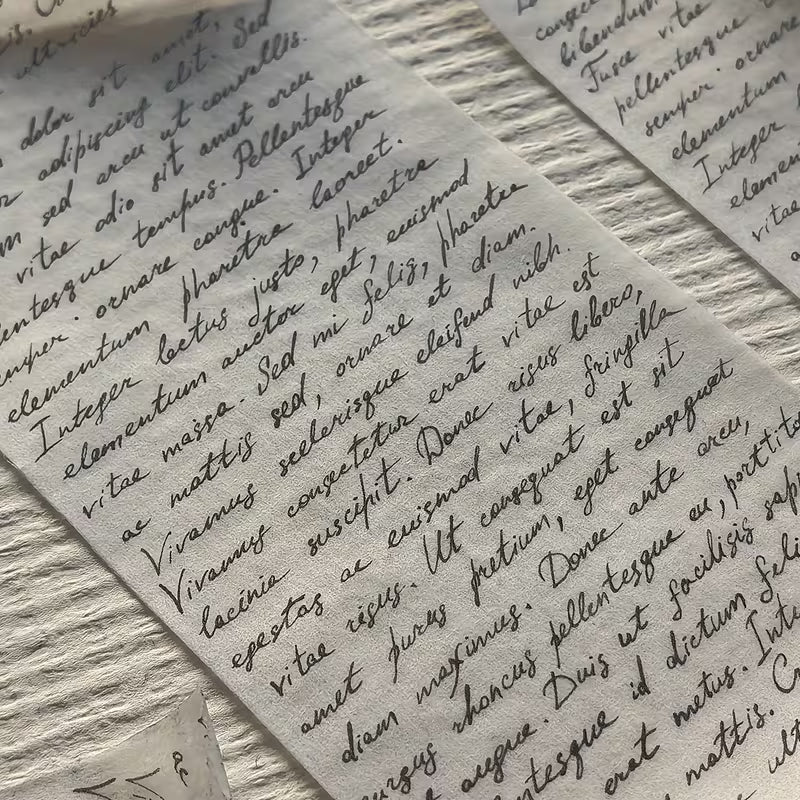 ultricies
dolor sit amet,
adipiscing elit. Sed
sed arcu ut convallis.
vitae odio sit amet arcu
tempus. Pellentesque
semper. ornare congue. Integer
elementum pharetra laoreet.
Integer lectus justo, pharetra
elementum auctor eget, euismod
vitae massa. Sed mi felis, pharetra
ac mattis sed, ornare et diam.
Vivamus scelerisque eleifend nibh.
Vivamus consectetur erat vitae est
lacinia suscipit. Donec risus libero,
egestas ac euismod vitae, fringilla
vitae risus. Ut consequat est sit
amet purus pretium, eget consequat
diam maximus. Donec ante arcu,
rhoncus pellentesque eu,
augue. Duis ut facilisis
id dictum
erat metus.
mattis.
bibendum
Fusce vitae
pellentesque
semper. ornare
elementum
Integer
vitae